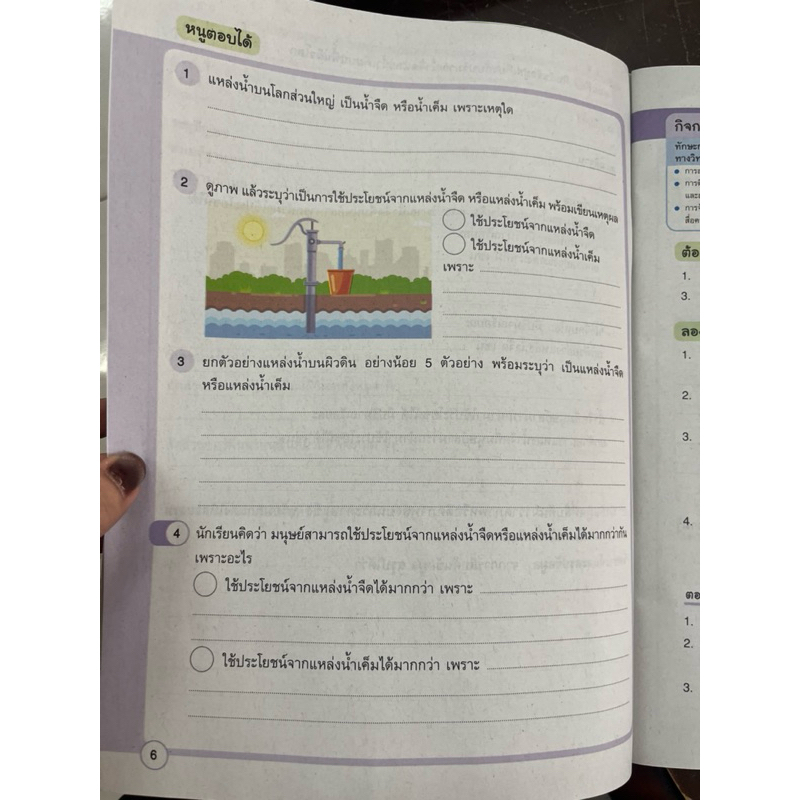 หนูตอบได้
1 แหล่งน้ำบนโลกส่วนใหญ่ เป็นน้ำจืด หรือน้ำเค็ม เพราะเหตุใด
2 ดูภาพ แล้วระบุว่าเป็นการใช้ประโยชน์จากแหล่งน้ำจืด หรือแหล่งน้ำเค็ม พร้อมเขียนเหตุผล
ใช้ประโยชน์จากแหล่งน้ำจืด
ใช้ประโยชน์จากแหล่งน้ำเค็ม
เพราะ
3 ยกตัวอย่างแหล่งน้ำบนผิวดิน อย่างน้อย 5 ตัวอย่าง พร้อมระบุว่า เป็นแหล่งน้ำจืด
หรือแหล่งน้ำเค็ม
4 นักเรียนคิดว่า มนุษย์สามารถใช้ประโยชน์จากแหล่งน้ำจืดหรือแหล่งน้ำเค็มได้มากกว่ากัน
เพราะอะไร
ใช้ประโยชน์จากแหล่งน้ำจืดได้มากกว่า เพราะ
ใช้ประโยชน์จากแหล่งน้ำเค็มได้มากกว่า เพราะ
6
กิจก
ทักษะก
ทางวิท
ต้อ
1.
3.
ลอง
1.
2.
3.
4.
ตอ
1.
2.
3.